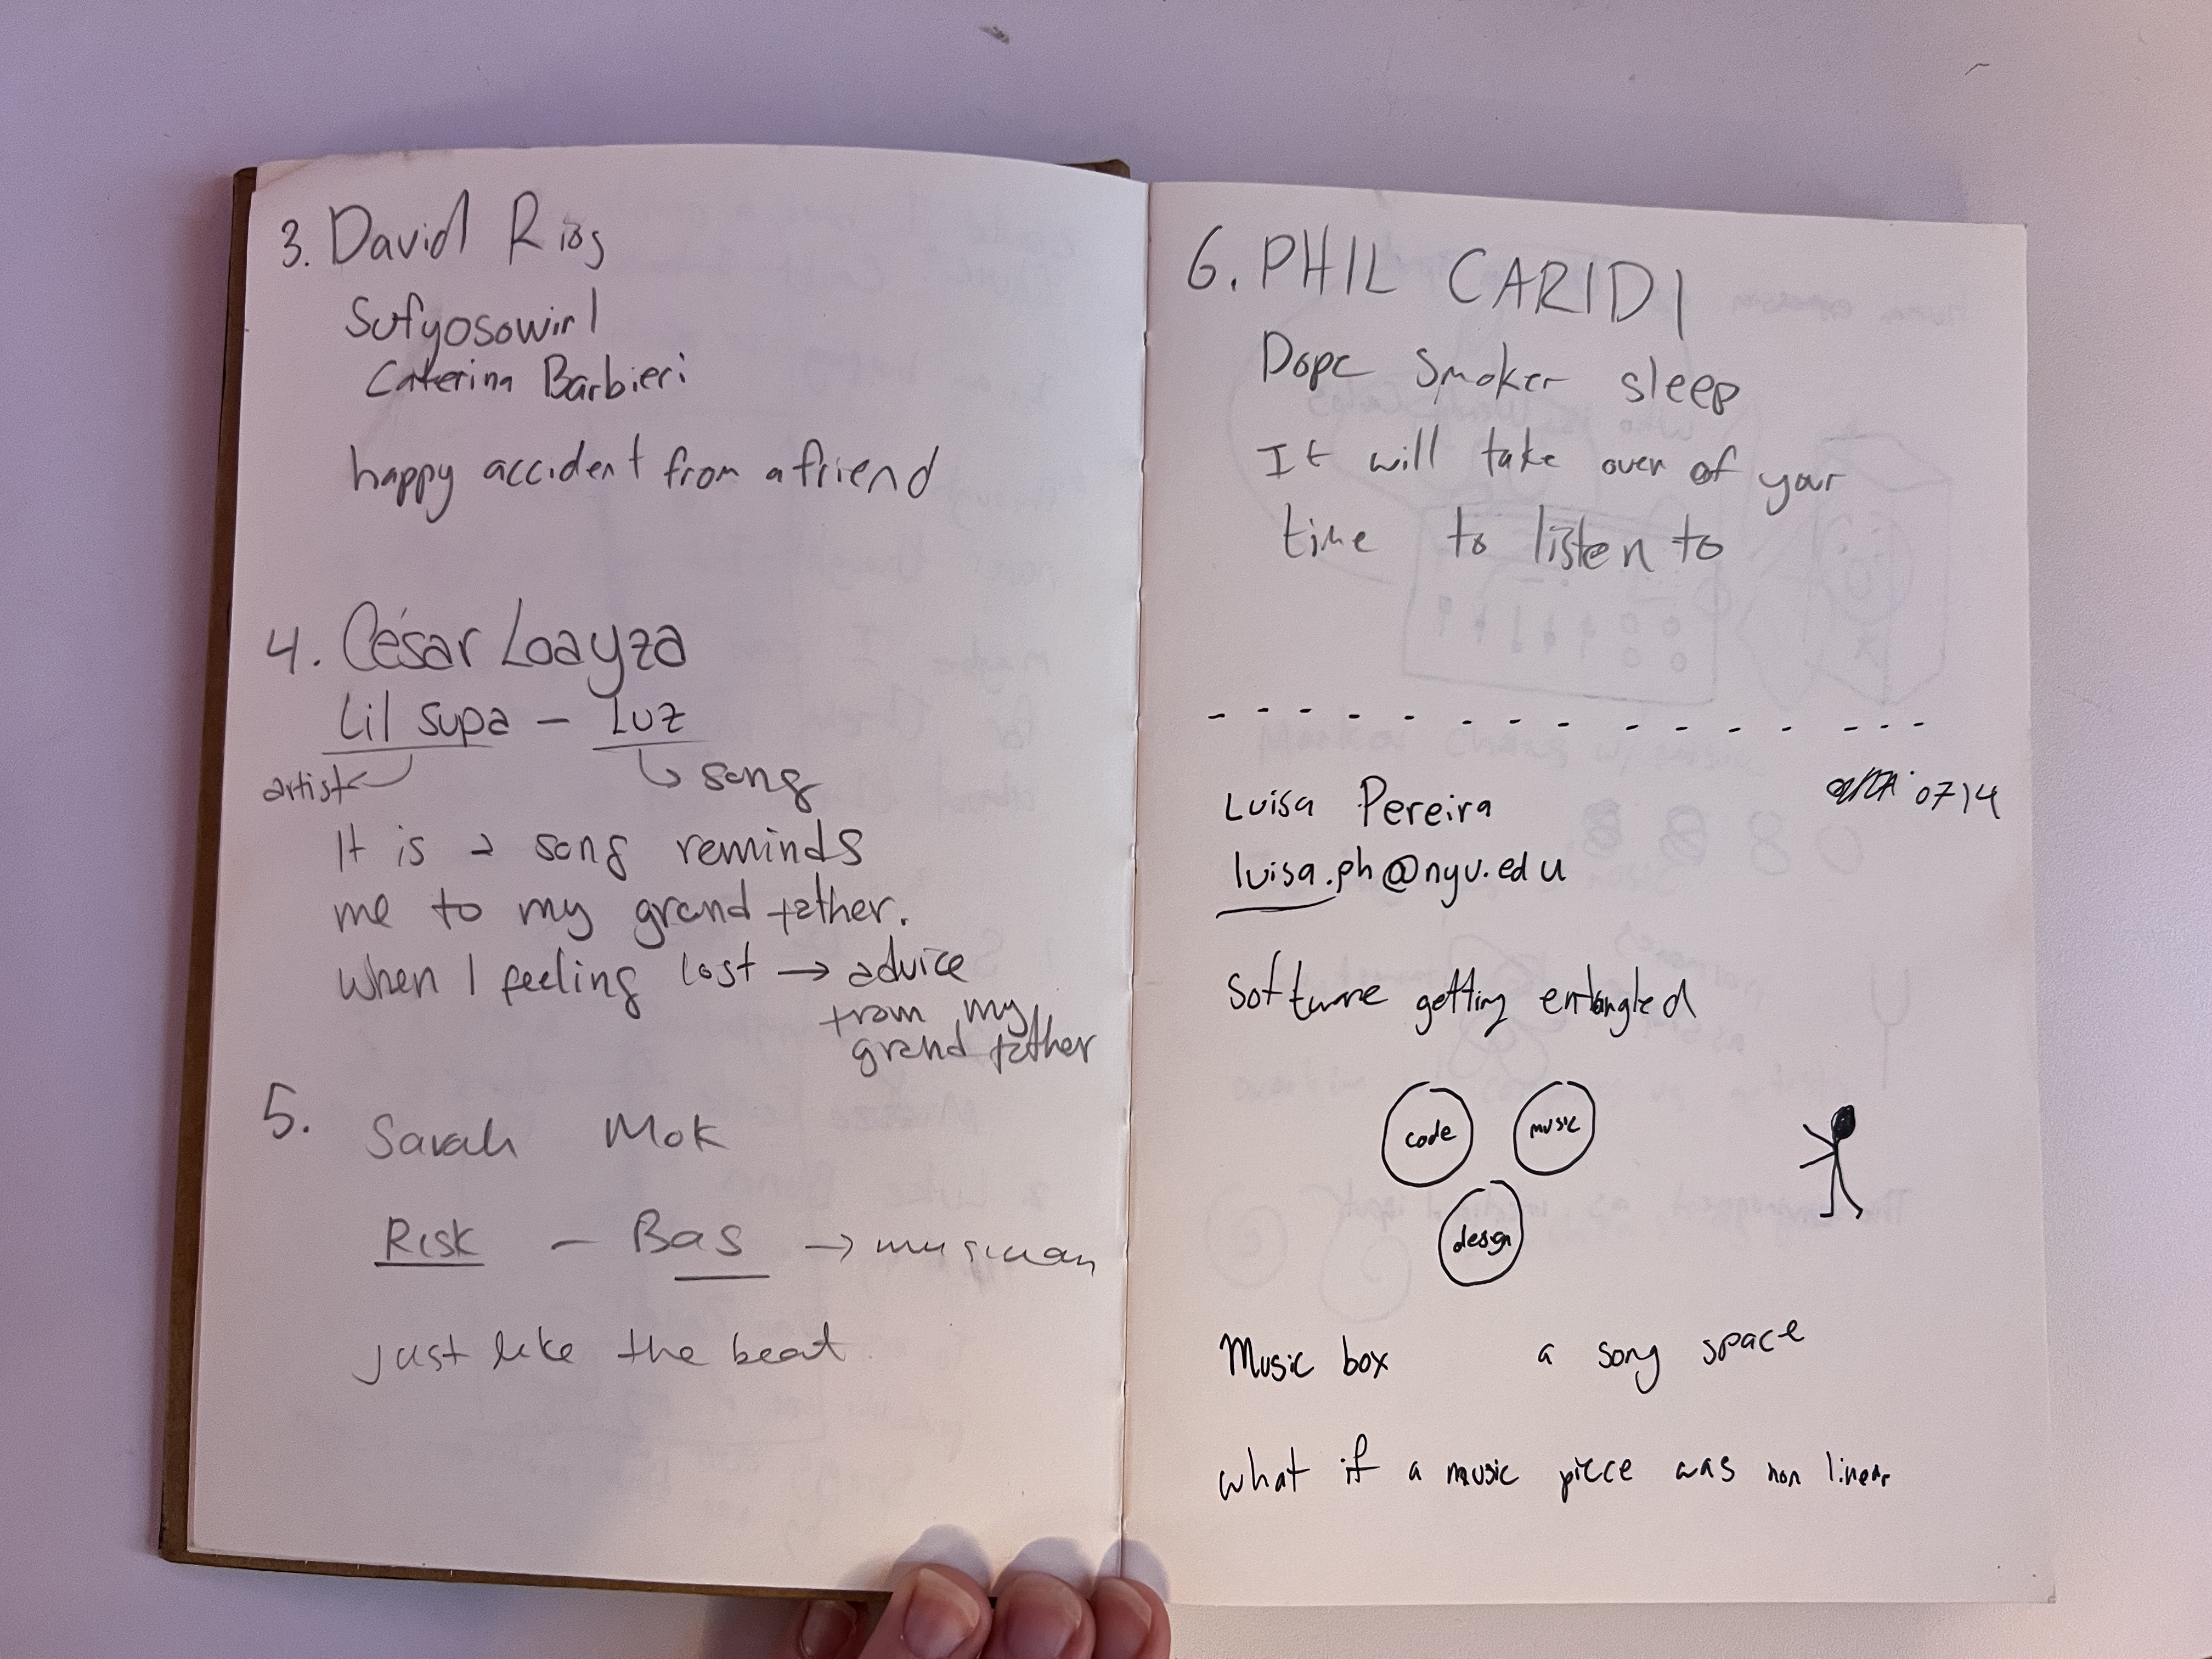 3. David Rios
Sufyosowirl
Caterina Barbieri
happy accident from a friend
4. César Loayza
Lil Supa — Luz
artist
song
It is a song reminds
me to my grand father.
when I feeling lost → advice
from my
grand father
5. Sarah Mok
Risk — Bas → musician
just like the beat
6. PHIL CARIDI
Dope Smoker sleep
It will take over of your
time to listen to
0714
Luisa Pereira
luisa.ph@nyu.edu
Software getting entangled
code
music
design
Music box a song space
what if a music piece was non linear